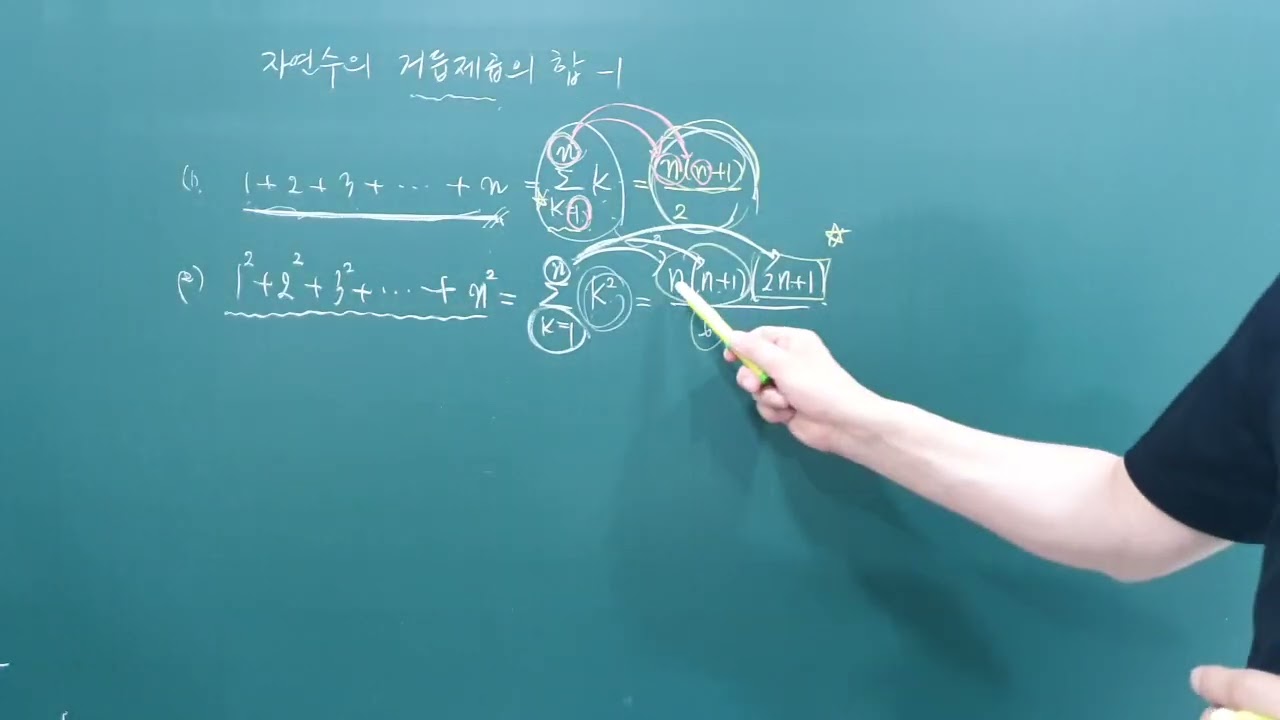 자연수의 거듭제곱의 합 -1
(1) 1 + 2 + 3 + ⋯ + n = ∑_{k=1}^{n} k = n(n+1)/2
(2) 1² + 2² + 3² + ⋯ + n² = ∑_{k=1}^{n} k² = n(n+1)(2n+1)/6